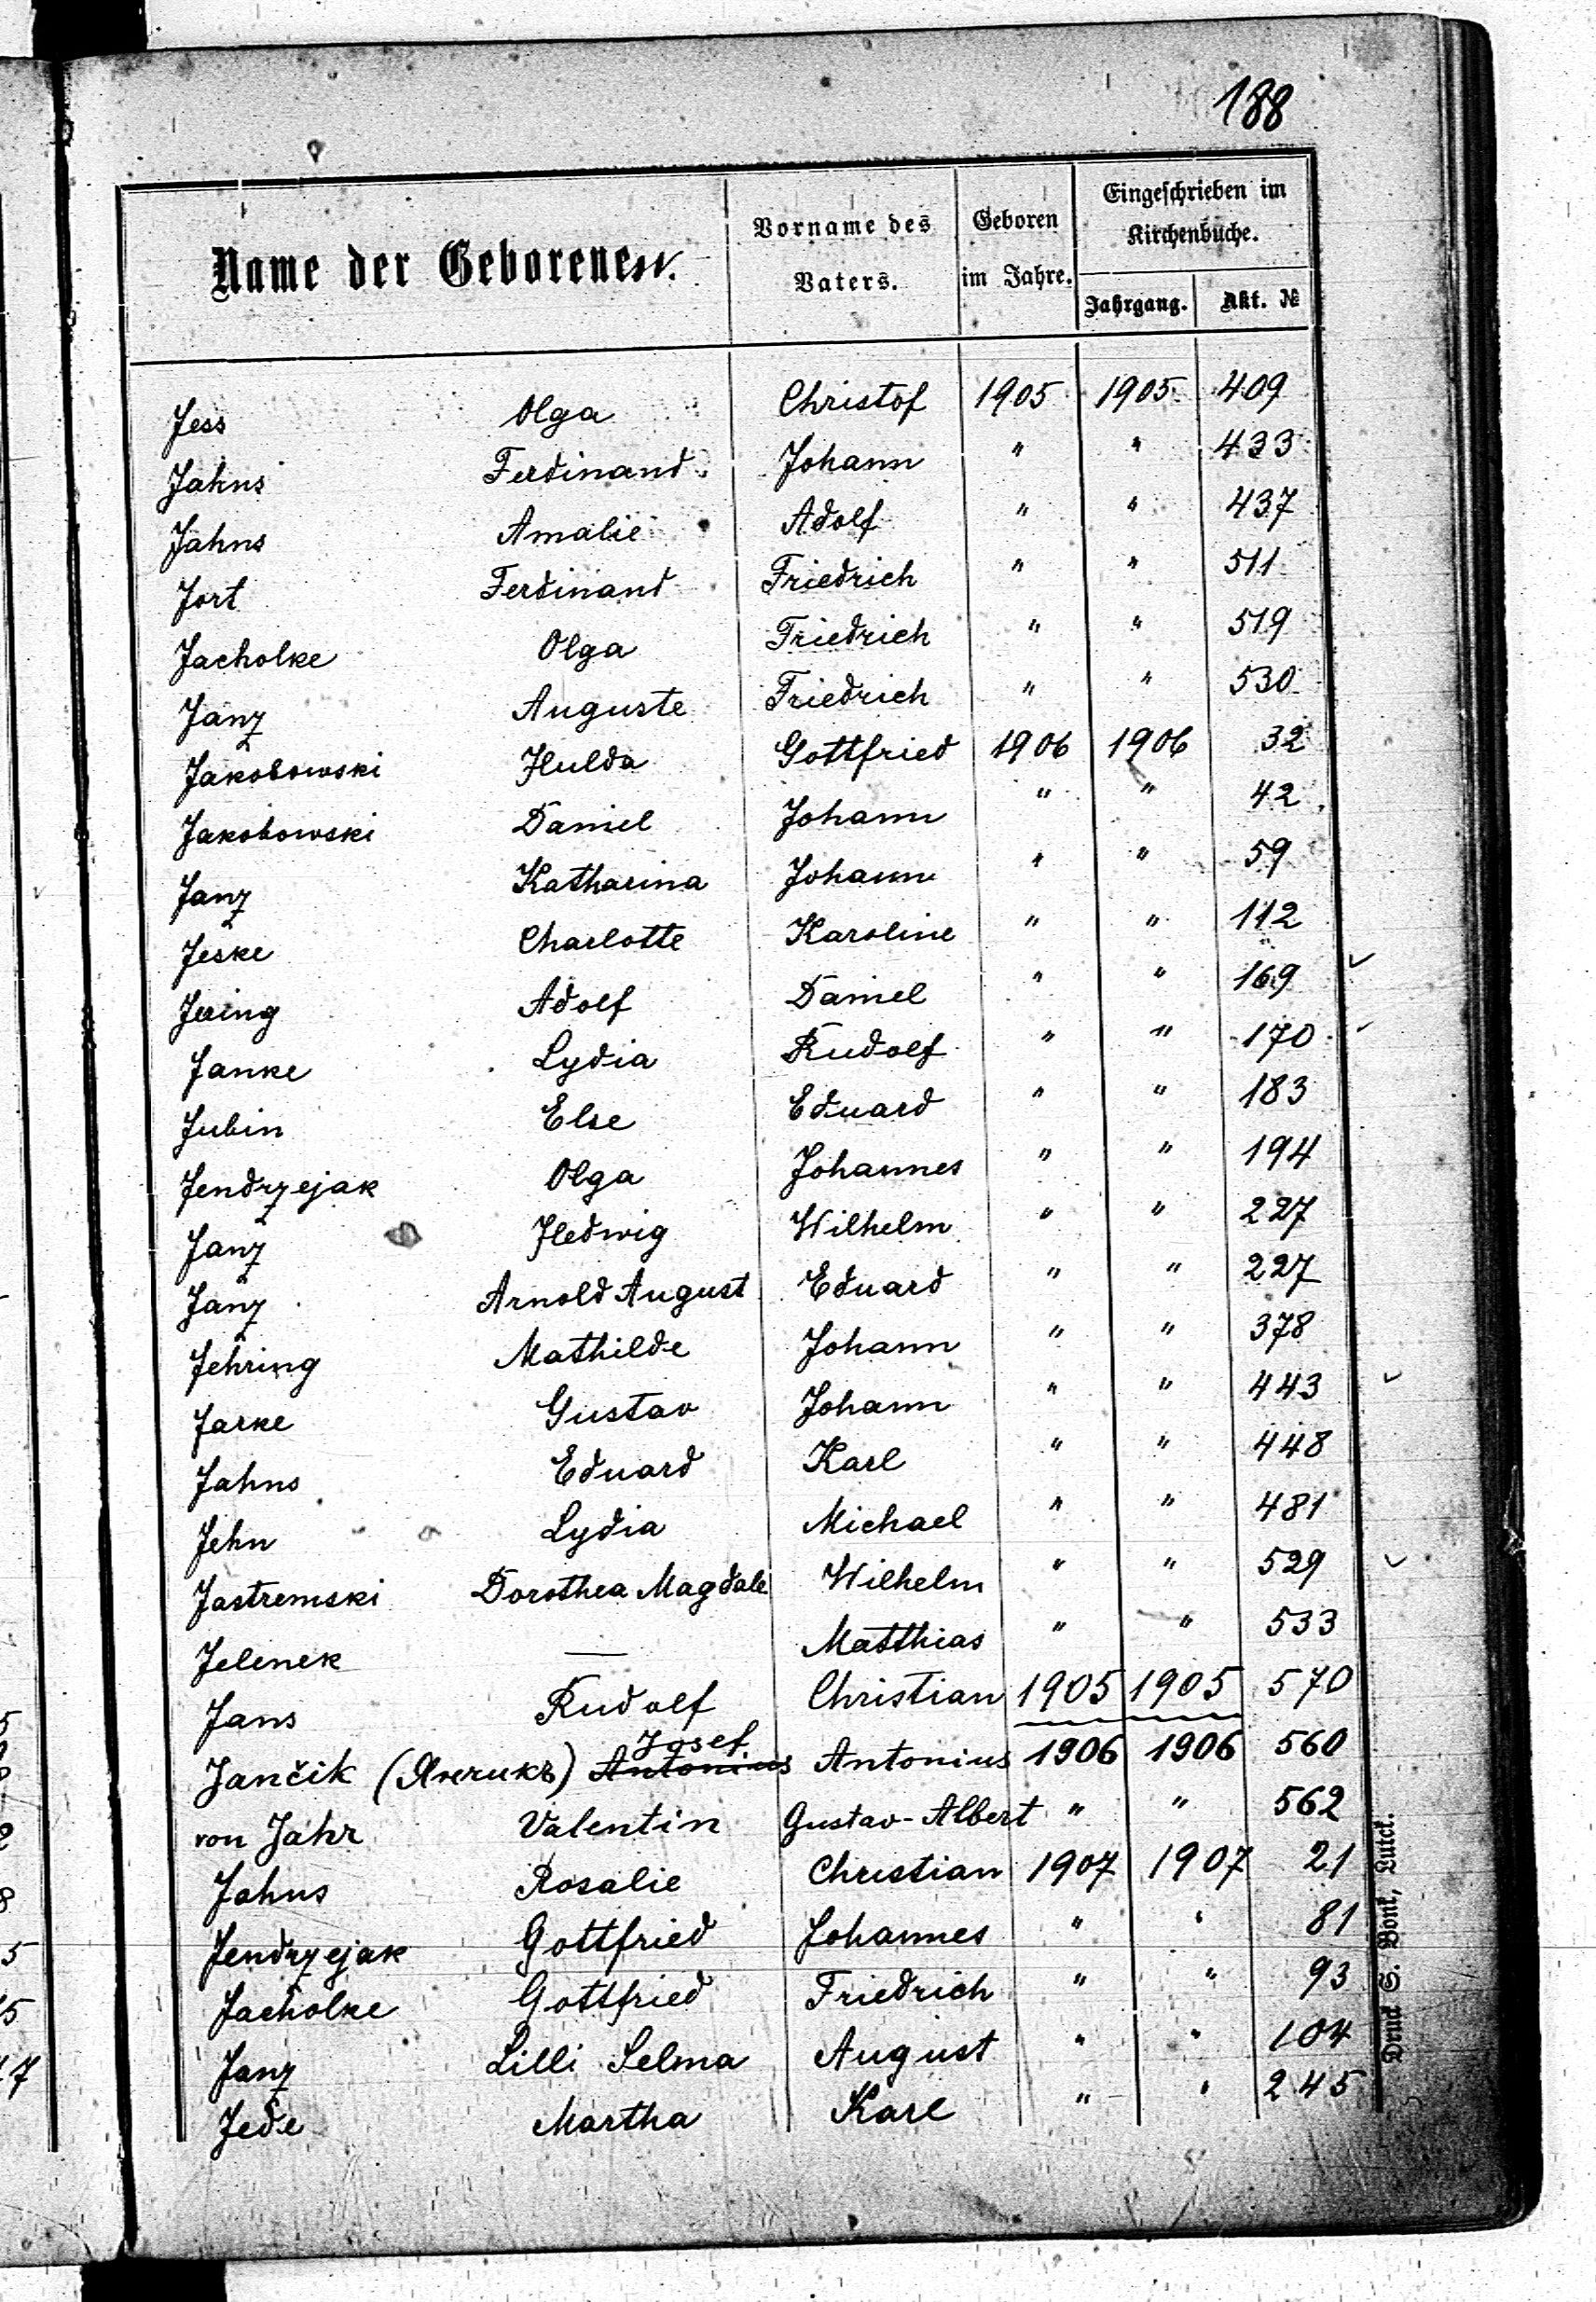 188
Name der Geborenen.
Vorname des Vaters.
Geboren im Jahre.
Eingeschrieben im Kirchenbuche.
Jahrgang. Akt. №
Jess Olga Christof 1905 1905 409
Jahns Ferdinand Johann " " 433
Jahns Amalie Adolf " " 437
Jort Ferdinand Friedrich " " 511
Jacholke Olga Friedrich " " 519
Janz Auguste Friedrich " " 530
Jakobowski Hulda Gottfried 1906 1906 32
Jakobowski Daniel Johann " " 42
Janz Katharina Johann " " 59
Jeske Charlotte Karoline " " 112
Jering Adolf Daniel " " 169
Janke Lydia Rudolf " " 170
Jubin Else Eduard " " 183
Jendrzejak Olga Johannes " " 194
Janz Hedwig Wilhelm " " 227
Janz Arnold August Eduard " " 227
Jehring Mathilde Johann " " 378
Jarke Gustav Johann " " 443
Jahns Eduard Karl " " 448
Jehn Lydia Michael " " 481
Jastremski Dorothea Magdale Wilhelm " " 529
Jelenek — Matthias " " 533
Jans Rudolf Christian 1905 1905 570
Josef
Jančik Antonius Antonius 1906 1906 560
von Jahr Valentin Gustav-Albert " " 562
Jahns Rosalie Christian 1907 1907 21
Jendrzejak Gottfried Johannes " " 81
Jacholke Gottfried Friedrich " " 93
Janz Lilli Selma August " " 104
Jede Martha Karl " " 245
Druck S. Bonk, Lutck.